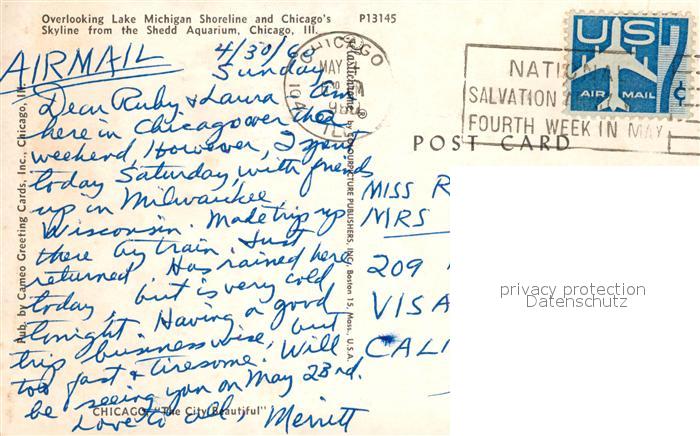 Overlooking Lake Michigan Shoreline and Chicago's
Skyline from the Shedd Aquarium, Chicago, Ill.
P13145
AIRMAIL
4/30/60
Sunday
Dear Ruby & Laura Am
here in Chicago over the
weekend, However, I spent
today Saturday, with friends
up in Milwaukee,
Wisconsin. Made trip up
there by train. Just
returned Has rained here
today, but is very cold
tonight. Having a good
trip businesswise, but
too fast & tiresome. Will
be seeing you on May 23rd.
Love to all, Merritt
CHICAGO "The City Beautiful"
Pub. by Cameo Greeting Cards, Inc., Chicago, Ill.
Plastichrome ® by COLOURPICTURE PUBLISHERS, INC., Boston 15, Mass., U.S.A.
CHICAGO
MAY
ILL
US
7¢
AIR MAIL
NATIONAL
SALVATION
FOURTH WEEK IN MAY
POST CARD
MISS R
MRS
209
VISA
CALI
privacy protection
Datenschutz